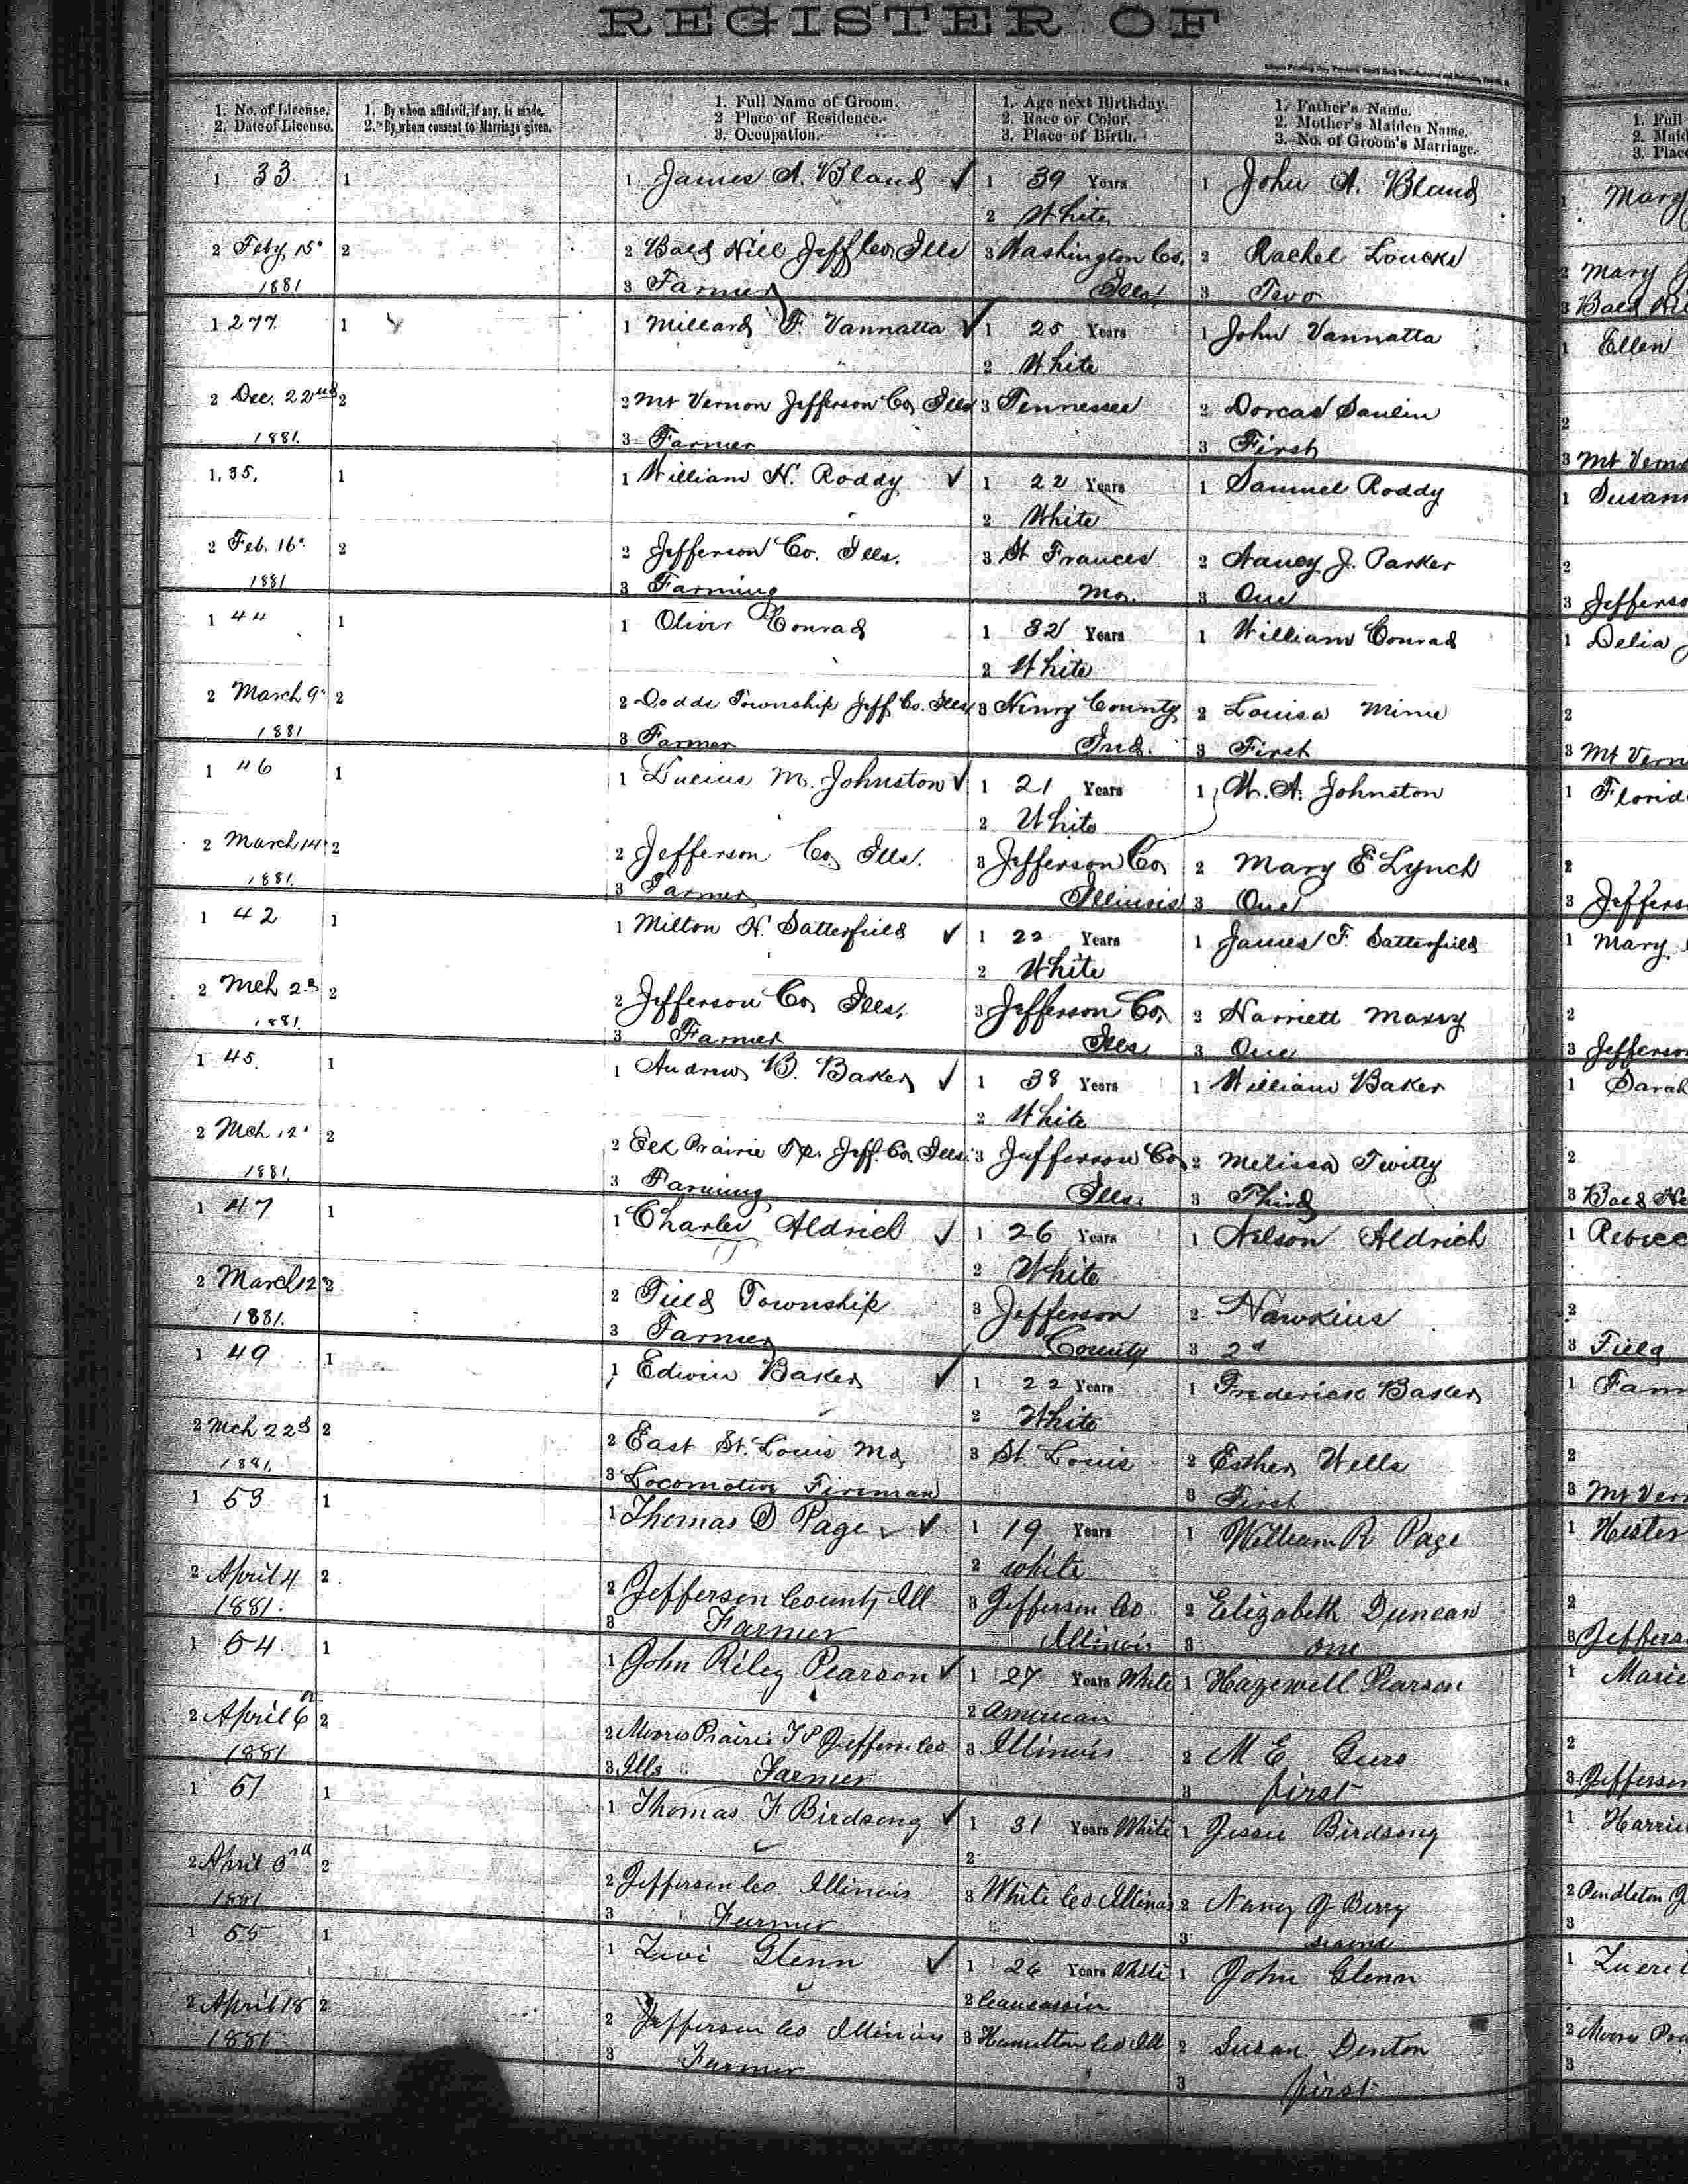 REGISTER OF
1. No. of License.
2. Date of License.
1. By whom affidavit, if any, is made.
2. By whom consent to Marriage given.
1. Full Name of Groom.
2 Place of Residence.
3. Occupation.
1. Age next Birthday.
2. Race or Color.
3. Place of Birth.
1. Father's Name.
2. Mother's Maiden Name.
3. No. of Groom's Marriage.
1. Full
2. Maid
3. Place
1 33 1 1 James A. Bland ✓ 1 39 Years 1 John A. Bland 1 Mary
2 White
2 Feby 15" 2 2 Bald Hill Jeff Co. Ills 3 Washington Co. 2 Rachel Loucks 2 Mary
1881 3 Farmer Ills. 3 Two 3 Bald
1 277 1 1 Millard F. Vannatta ✓ 1 25 Years 1 John Vannatta 1 Ellen
2 White
2 Dec. 22nd 2 2 Mt Vernon Jefferson Co, Ills 3 Tennessee 2 Dorcas 2
1881. 3 Farmer 3 First 3 Mt Vern
1. 35. 1 1 William H. Roddy ✓ 1 22 Years 1 Samuel Roddy 1 Susan
2 White
2 Feb. 16" 2 2 Jefferson Co. Ills. 3 St Frances 2 Nancy J. Parker 2
1881 3 Farming Mo. 3 One 3 Jefferso
1 44 1 1 Oliver Conrad 1 32 Years 1 William Conrad 1 Delia
2 White
2 March 9" 2 2 Dodds Township Jeff Co. Ills 3 Henry County 2 Louisa 2
1881 3 Farmer Ind. 3 First 3 Mt Vern
1 46 1 1 Lucius M. Johnston ✓ 1 21 Years 1 W. A. Johnston 1 Florid
2 White
2 March 14" 2 2 Jefferson Co, Ills. 3 Jefferson Co, 2 Mary E Lynch 2
1881. 3 Farmer Illinois 3 One 3 Jeffers
1 42 1 1 Milton H. Satterfield ✓ 1 22 Years 1 James F. Satterfield 1 Mary
2 White
2 Mch 2d 2 2 Jefferson Co, Ills. 3 Jefferson Co, 2 Harriett Maxey 2
1881. 3 Farmer Ills 3 One 3 Jefferson
1 45. 1 1 Andrew B. Baker ✓ 1 38 Years 1 William Baker 1 Sarah
2 White
2 Mch 12" 2 2 Elk Prairie Tp. Jeff. Co. Ills. 3 Jefferson Co, 2 Melissa Twitty 2
1881. 3 Farming Ills. 3 Third 3 Bald
1 47 1 1 Charles Aldrich ✓ 1 26 Years 1 Nelson Aldrich 1 Rebecc
2 White
2 March 12" 2 2 Field Township 3 Jefferson 2 Hawkins 2
1881. 3 Farmer County 3 2d 3 Field
1 49 1 1 Edwin Baker ✓ 1 22 Years 1 Frederick Baker 1 Fann
2 White
2 Mch 22d 2 2 East St. Louis Mo, 3 St. Louis 2 Esther Wells 2
1881. 3 Locomotive Fireman 3 First 3 Mt Ver
1 53 1 1 Thomas D Page ✓ ✓ 1 19 Years 1 William R Page 1 Hester
2 white
2 April 4 2 2 Jefferson County Ill 3 Jefferson Co 2 Elizabeth Duncan 2
1881. 3 Farmer Illinois 3 one 3 Jeffers
1 54 1 1 John Riley Pearson ✓ 1 27 Years White 1 Hazewell Pearson 1 Marie
2 American
2 April 6th 2 2 Moores Prairie TP Jefferson Co 3 Illinois 2 M E 2
1881 3 Ills Farmer 3 first 3 Jefferson
1 51 1 1 Thomas F Birdsong ✓ 1 31 Years White 1 Jesse Birdsong 1 Harrie
2
2 April 3rd 2 2 Jefferson Co Illinois 3 White Co Illinois 2 Nancy J Berry 2 Pendleton
1881 3 Farmer 3 second 3
1 55 1 1 Levi Glenn ✓ 1 26 Years White 1 John Glenn 1
2 Caucassin
2 April 18 2 2 Jefferson Co Illinois 3 Hamilton Co Ill 2 Susan Denton 2 Moores Pra
1881 3 Farmer 3 first 3